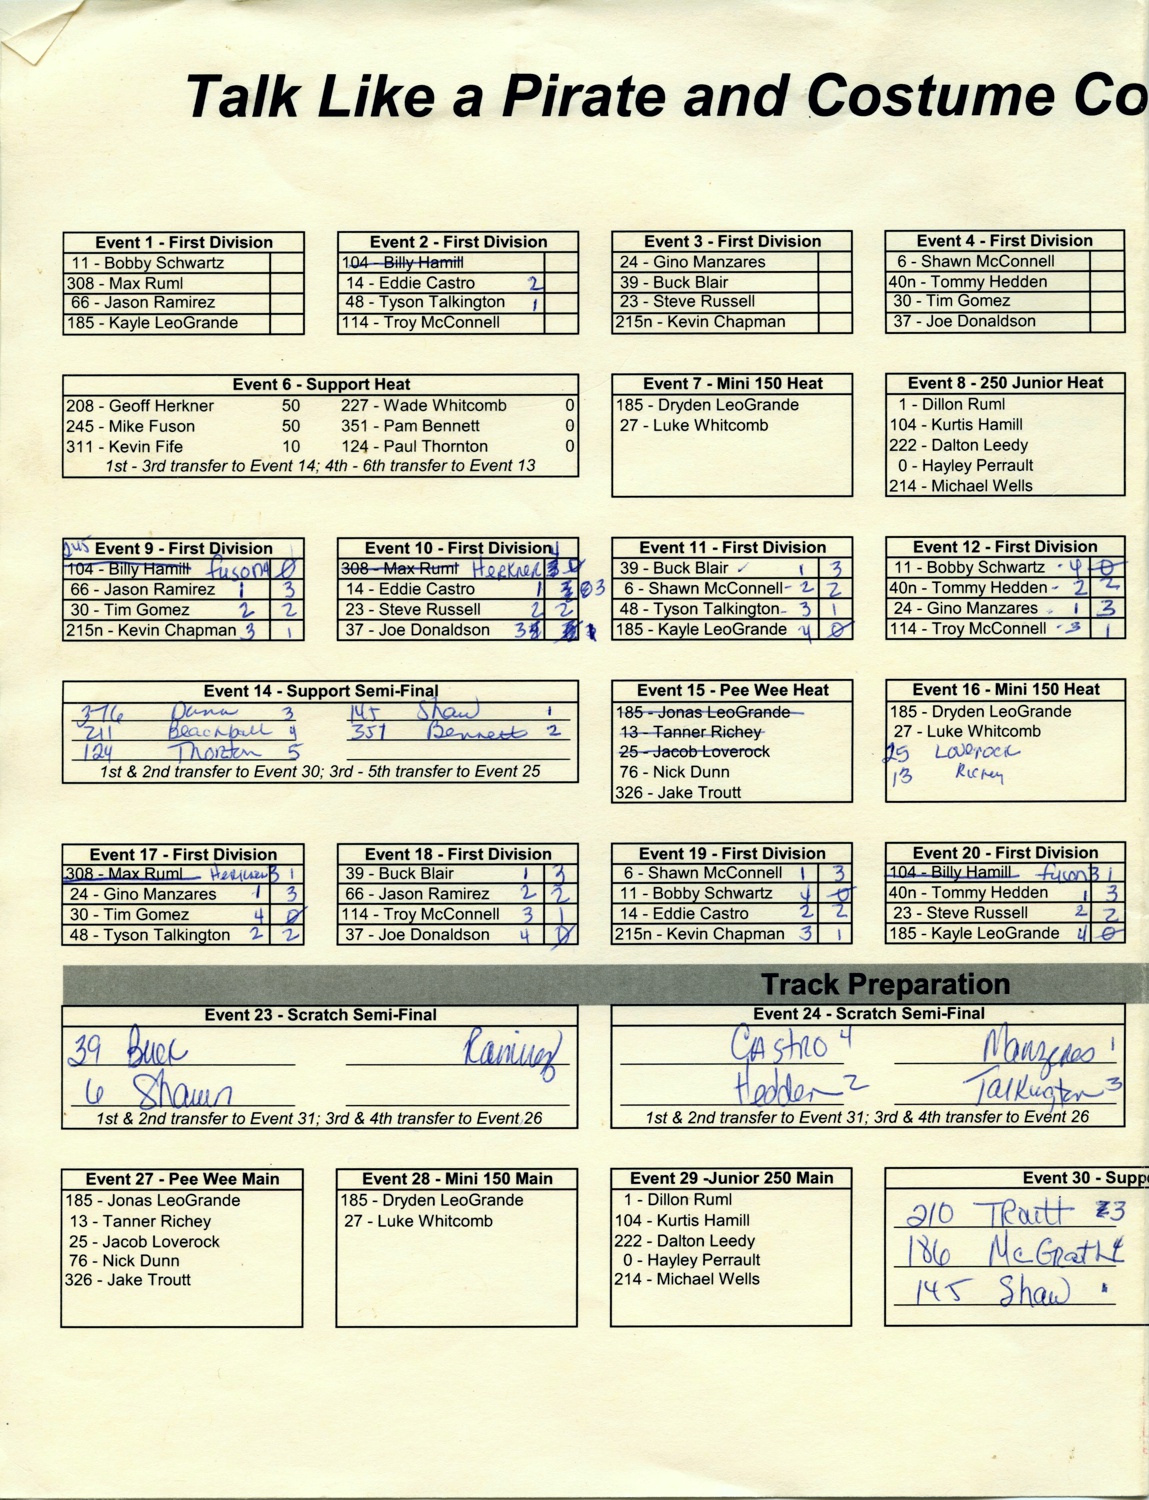 Talk Like a Pirate and Costume Co
Event 1 - First Division
11 - Bobby Schwartz
308 - Max Ruml
66 - Jason Ramirez
185 - Kayle LeoGrande
Event 2 - First Division
104 - Billy Hamill
14 - Eddie Castro 2
48 - Tyson Talkington 1
114 - Troy McConnell
Event 3 - First Division
24 - Gino Manzares
39 - Buck Blair
23 - Steve Russell
215n - Kevin Chapman
Event 4 - First Division
6 - Shawn McConnell
40n - Tommy Hedden
30 - Tim Gomez
37 - Joe Donaldson
Event 6 - Support Heat
208 - Geoff Herkner 50 227 - Wade Whitcomb 0
245 - Mike Fuson 50 351 - Pam Bennett 0
311 - Kevin Fife 10 124 - Paul Thornton 0
1st - 3rd transfer to Event 14; 4th - 6th transfer to Event 13
Event 7 - Mini 150 Heat
185 - Dryden LeoGrande
27 - Luke Whitcomb
Event 8 - 250 Junior Heat
1 - Dillon Ruml
104 - Kurtis Hamill
222 - Dalton Leedy
0 - Hayley Perrault
214 - Michael Wells
245 Event 9 - First Division
104 - Billy Hamill Fuson 4 0
66 - Jason Ramirez 1 3
30 - Tim Gomez 2 2
215n - Kevin Chapman 3 1
Event 10 - First Division 4
308 - Max Ruml Herkner 0
14 - Eddie Castro 1 3
23 - Steve Russell 2 2
37 - Joe Donaldson 3 1
Event 11 - First Division
39 - Buck Blair 1 3
6 - Shawn McConnell - 2 2
48 - Tyson Talkington - 3 1
185 - Kayle LeoGrande 4 0
Event 12 - First Division
11 - Bobby Schwartz - 4 0
40n - Tommy Hedden - 2 2
24 - Gino Manzares - 1 3
114 - Troy McConnell - 3 1
Event 14 - Support Semi-Final
376 Dunn 3 145 Shaw 1
211 Blackball 4 351 Bennett 2
124 Thorton 5
1st & 2nd transfer to Event 30; 3rd - 5th transfer to Event 25
Event 15 - Pee Wee Heat
185 - Jonas LeoGrande
13 - Tanner Richey
25 - Jacob Loverock
76 - Nick Dunn
326 - Jake Troutt
Event 16 - Mini 150 Heat
185 - Dryden LeoGrande
27 - Luke Whitcomb
25 Loverock
13 Richey
Event 17 - First Division
308 - Max Ruml Herkner 3 1
24 - Gino Manzares 1 3
30 - Tim Gomez 4 0
48 - Tyson Talkington 2 2
Event 18 - First Division
39 - Buck Blair 1 3
66 - Jason Ramirez 2 2
114 - Troy McConnell 3 1
37 - Joe Donaldson 4 0
Event 19 - First Division
6 - Shawn McConnell 1 3
11 - Bobby Schwartz 4 0
14 - Eddie Castro 2 2
215n - Kevin Chapman 3 1
Event 20 - First Division
104 - Billy Hamill fuson 3 1
40n - Tommy Hedden 1 3
23 - Steve Russell 2 2
185 - Kayle LeoGrande 4 0
Track Preparation
Event 23 - Scratch Semi-Final
39 Buck Ramirez
6 Shawn
1st & 2nd transfer to Event 31; 3rd & 4th transfer to Event 26
Event 24 - Scratch Semi-Final
Castro 4 Manzeres 1
Hedden 2 Talkington 3
1st & 2nd transfer to Event 31; 3rd & 4th transfer to Event 26
Event 27 - Pee Wee Main
185 - Jonas LeoGrande
13 - Tanner Richey
25 - Jacob Loverock
76 - Nick Dunn
326 - Jake Troutt
Event 28 - Mini 150 Main
185 - Dryden LeoGrande
27 - Luke Whitcomb
Event 29 -Junior 250 Main
1 - Dillon Ruml
104 - Kurtis Hamill
222 - Dalton Leedy
0 - Hayley Perrault
214 - Michael Wells
Event 30 - Supp
210 TRoutt 3
186 McGrath 4
145 Shaw 1